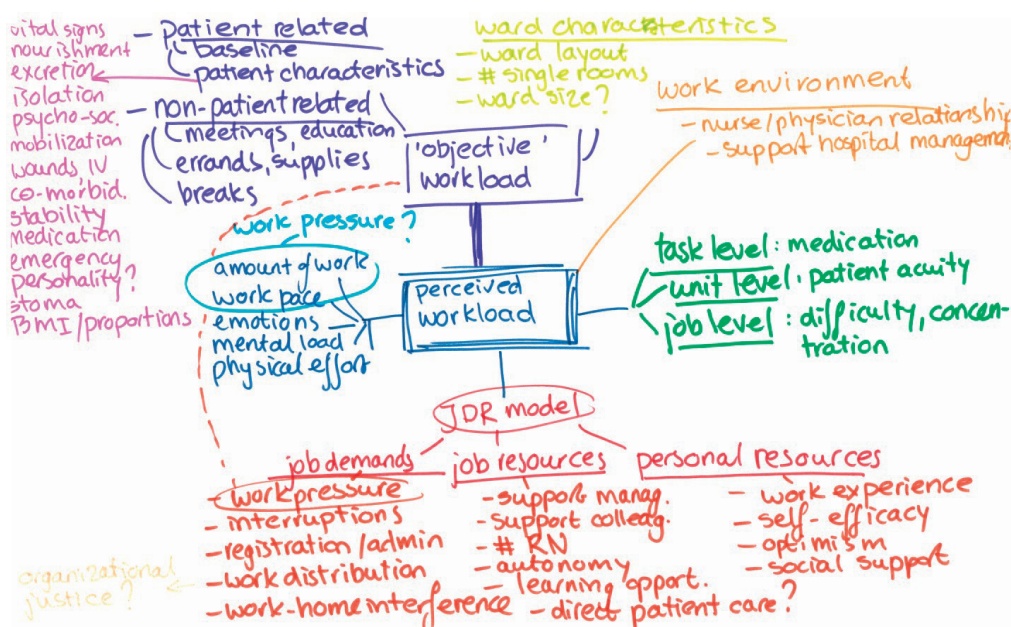 vital signs
nourishment
excretion
isolation
psycho-soc.
mobilization
wounds IV
co-morbid.
stability
medication
emergency
personality?
stoma
BMI/proportions
- patient related
baseline
patient characteristics
- non-patient related
meetings, education
errands, supplies
breaks
ward characteristics
- ward layout
- # single rooms
- ward size?
work environment
- nurse/physician relationship
- support hospital managem
'objective'
workload
work pressure?
amount of work
work pace
emotions
mental load
physical effort
perceived
workload
task level: medication
unit level: patient acuity
job level: difficulty, concen-
tration
JDR model
job demands
- work pressure
- interruptions
- registration/admin
- work distribution
- work-home interference
job resources
- support manag.
- support colleag.
- # RN
- autonomy
- learning opport.
- direct patient care?
personal resources
- work experience
- self-efficacy
- optimism
- social support
organizational
justice?